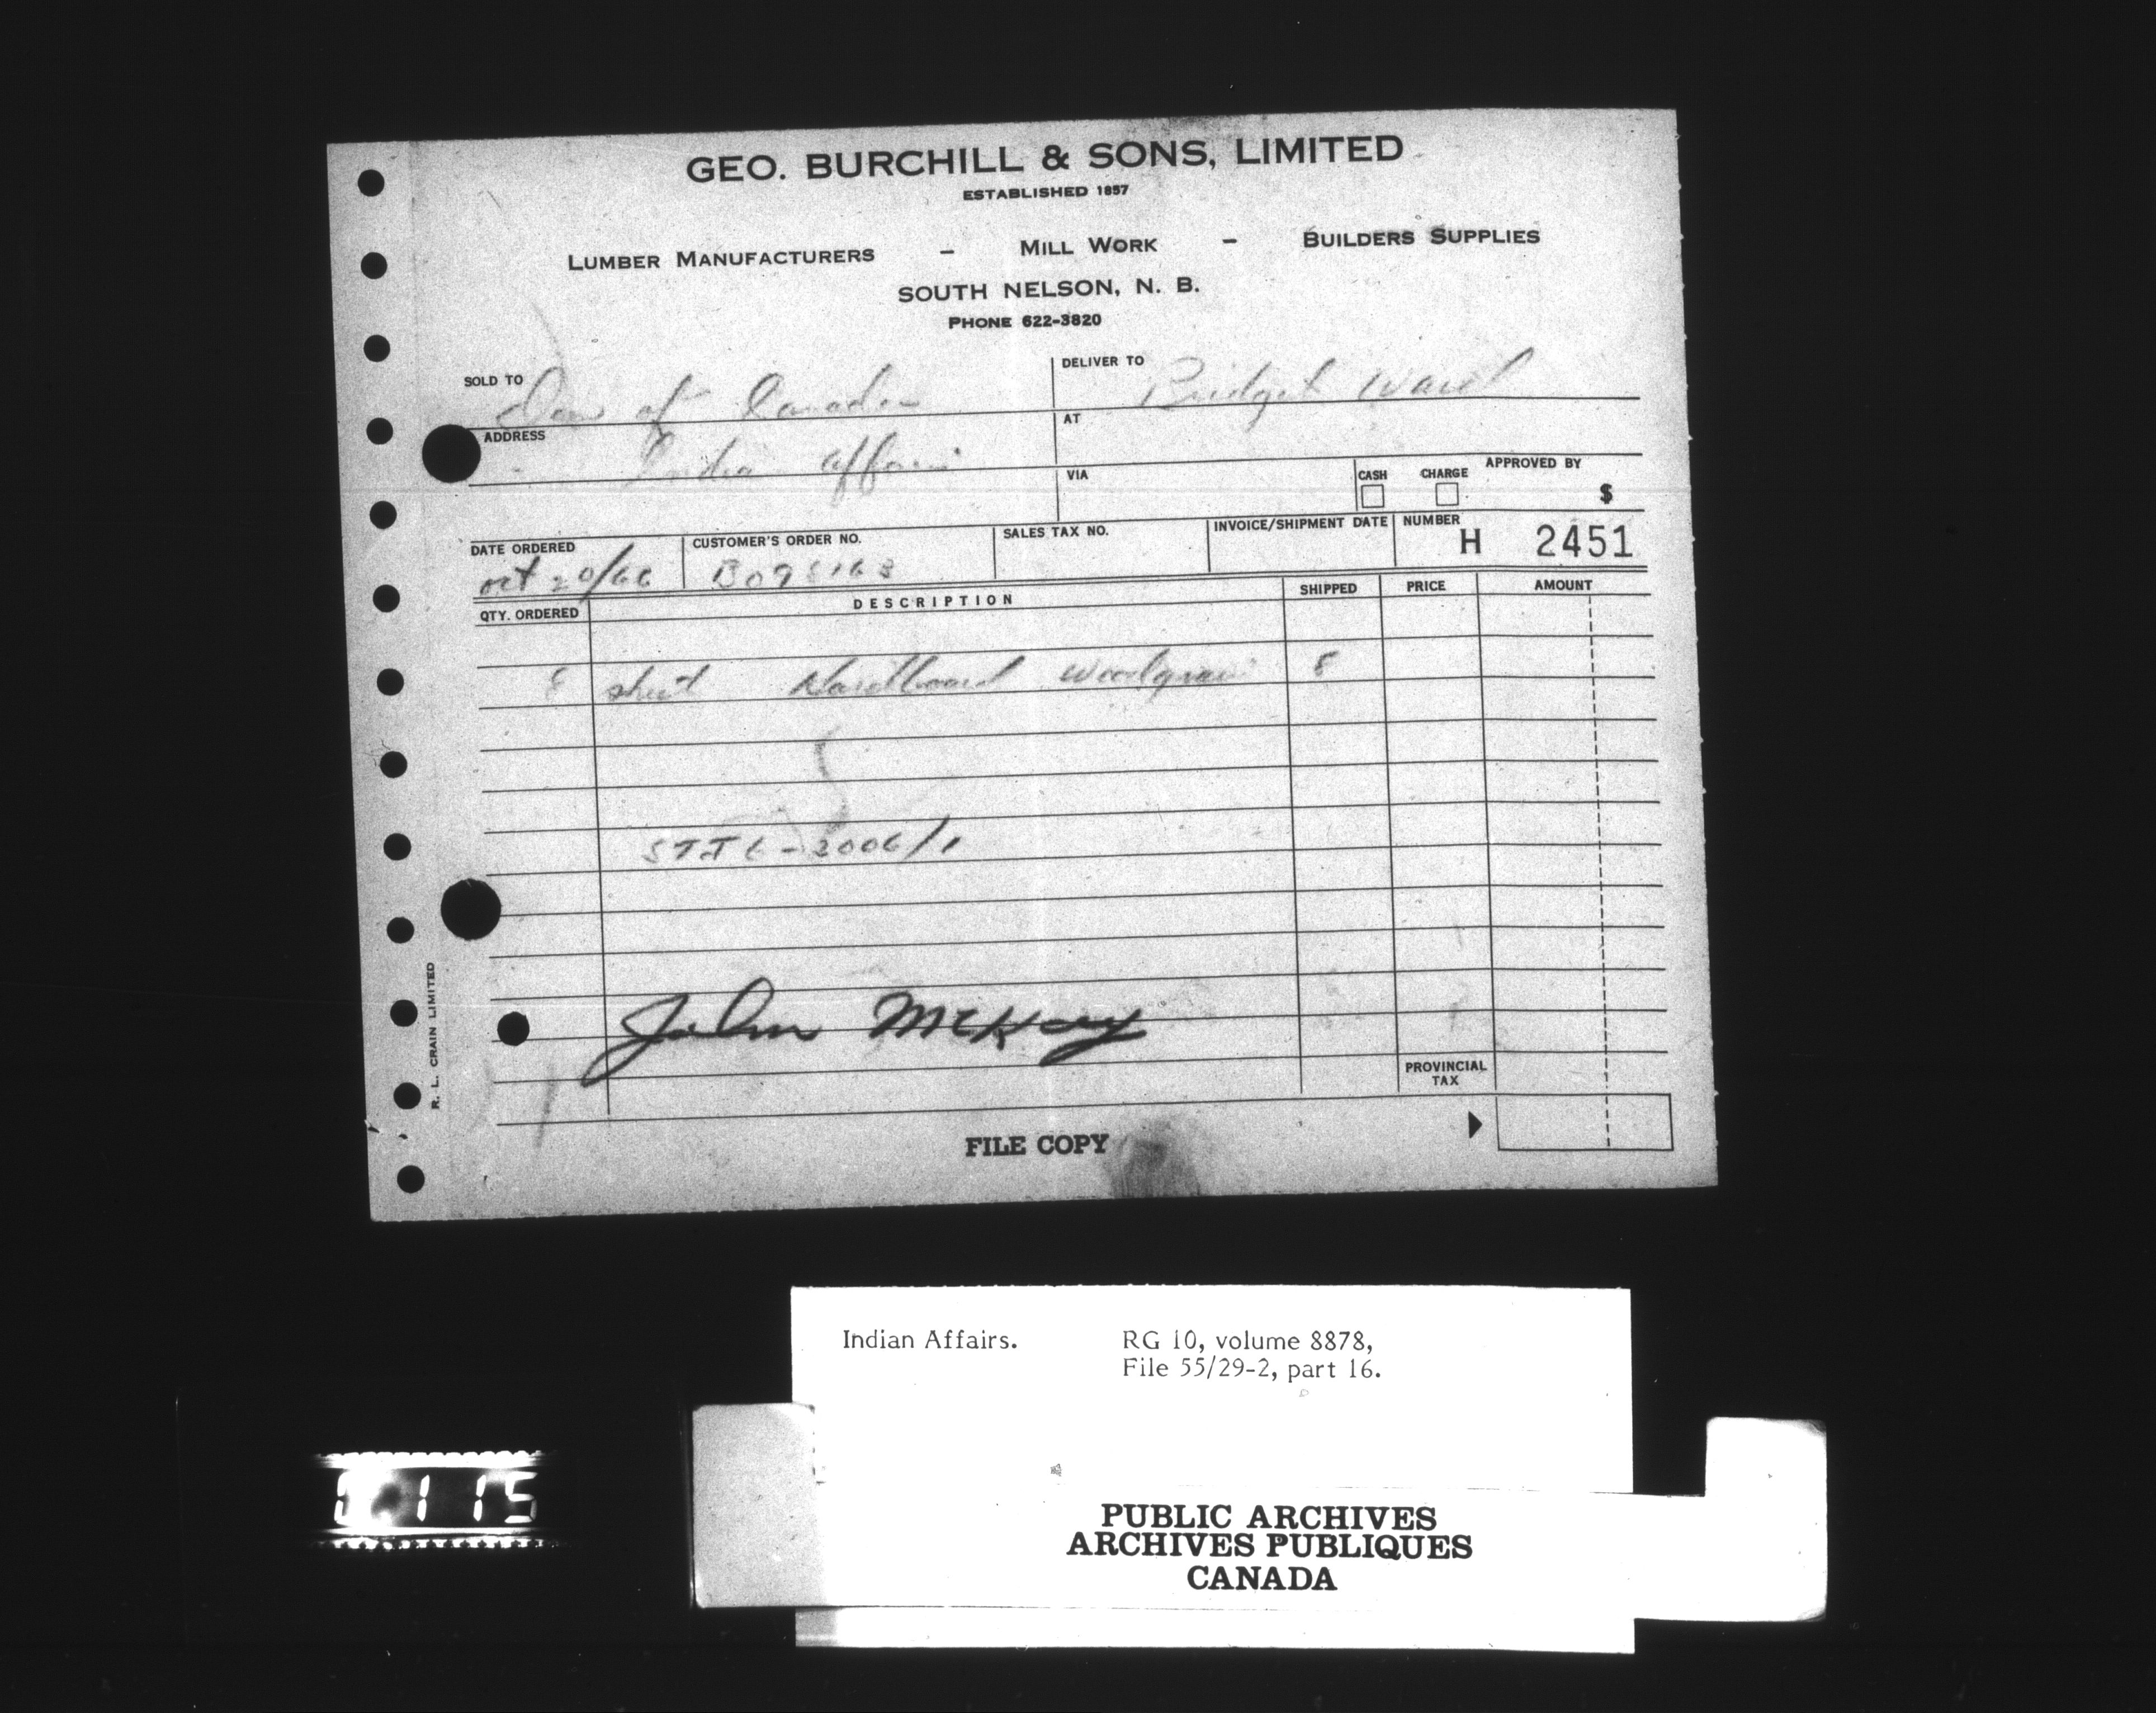 GEO. BURCHILL & SONS, LIMITED
ESTABLISHED 1857
LUMBER MANUFACTURERS - MILL WORK - BUILDERS SUPPLIES
SOUTH NELSON, N. B.
PHONE 622-3820
SOLD TO Dom of Canada
DELIVER TO Bridget Ward
ADDRESS India Affairs
AT
VIA
CASH CHARGE APPROVED BY
$
DATE ORDERED oct 20/66
CUSTOMER'S ORDER NO.
SALES TAX NO.
INVOICE/SHIPMENT DATE
NUMBER H 2451
QTY. ORDERED DESCRIPTION SHIPPED PRICE AMOUNT
8 sheet Hardboard woodgrain 8
John McKay
PROVINCIAL TAX
FILE COPY
R. L. CRAIN LIMITED
Indian Affairs. RG 10, volume 8878,
File 55/29-2, part 16.
115
PUBLIC ARCHIVES
ARCHIVES PUBLIQUES
CANADA